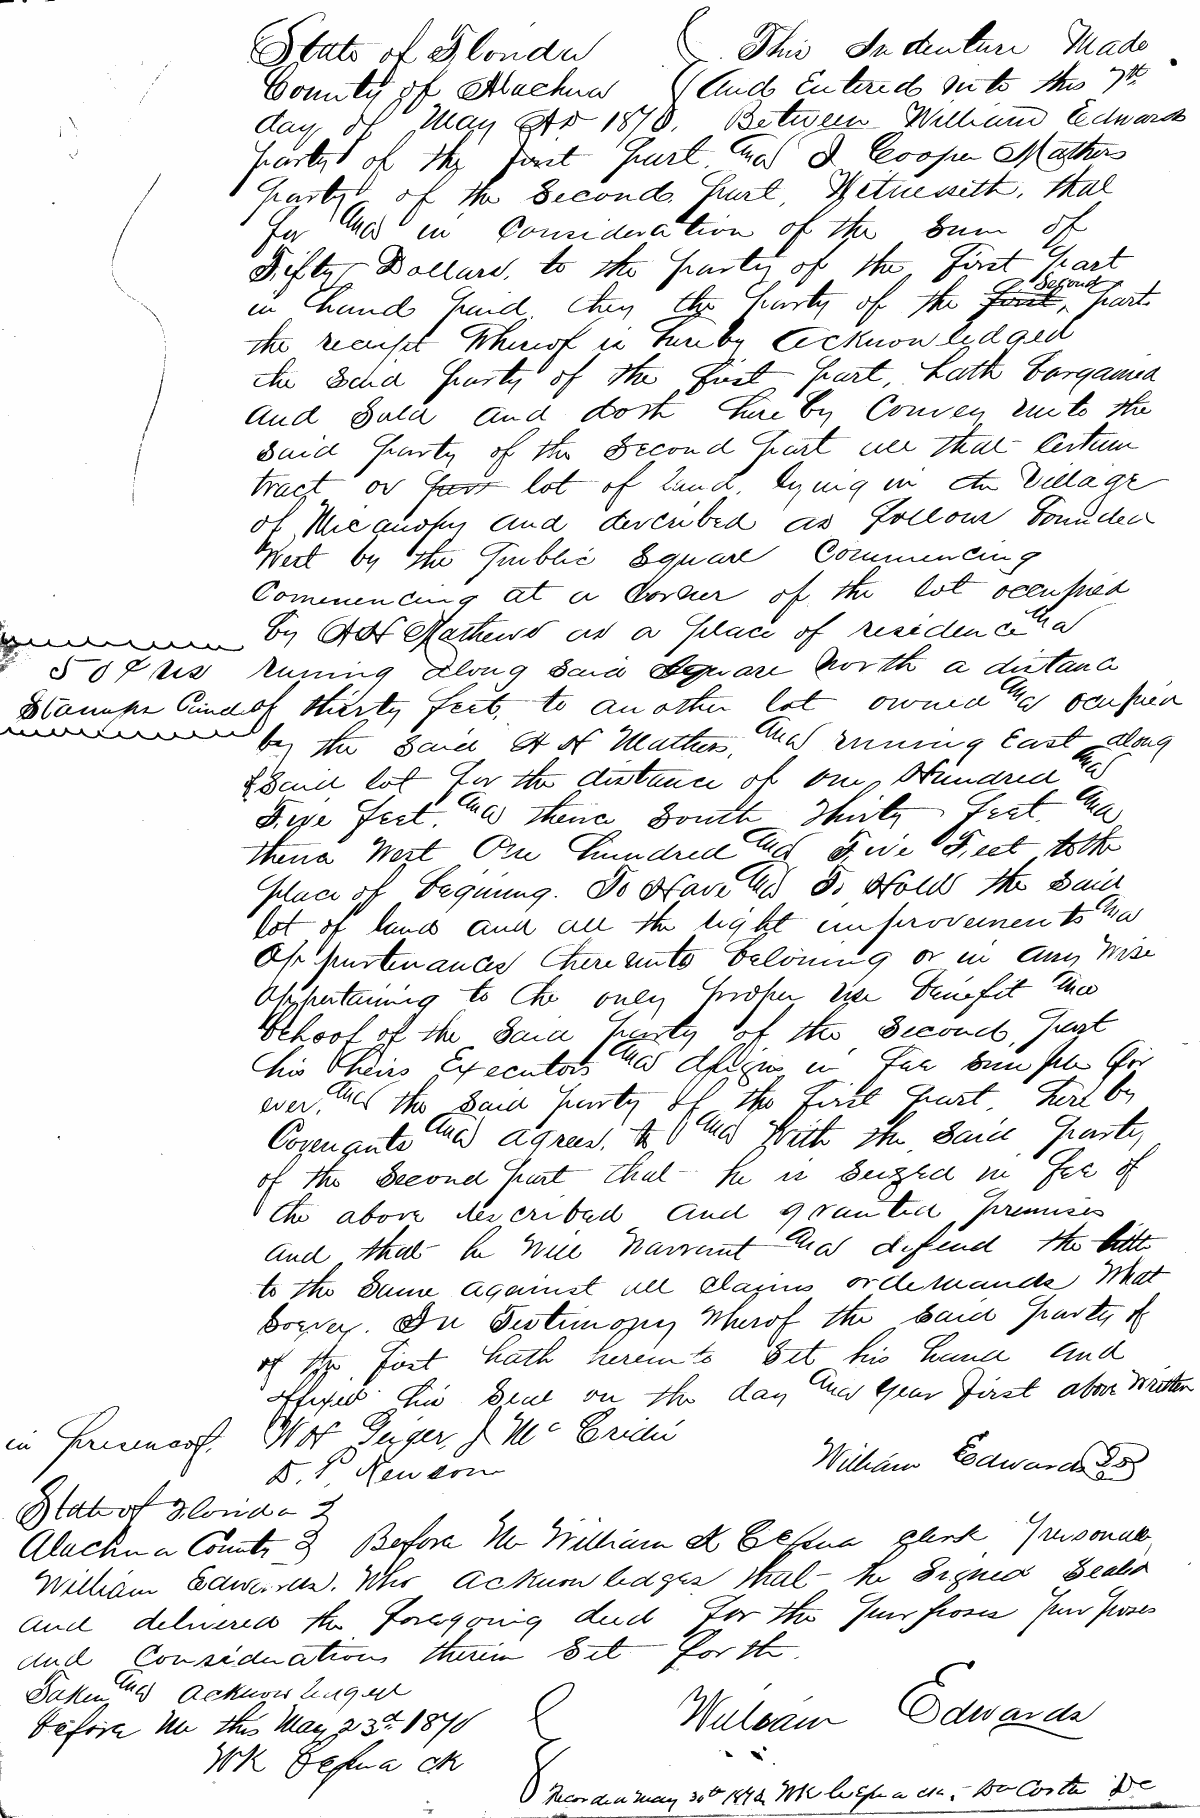 State of Florida } This Indenture Made
County of Alachua } And Entered into this 7th
day of May AD 1870. Between William Edwards
party of the first part and J Cooper Mathers
party of the Second part, Witnesseth, that
for and in Consideration of the Sum of
Fifty Dollars, to the party of the first part
in hand paid, they the party of the first, Second part
the receipt Whereof is hereby Acknowledged
the Said party of the first part, hath bargained
and Sold and doth hereby Convey unto the
Said party of the Second part all that Certain
tract or part lot of land, lying in the Village
of Micanopy and described as follows bounded
West by the Public Square Commencing
Commencing at a Corner of the lot occupied
by H H Mathers as a place of residence and
50 cts runing along Said Square North a distance
Stamps Cancd of thirty feet, to another lot owned and ocupied
by the Said H H Mathers, and running East along
& Said lot for the distance of one Hundred and
Five feet, and thence South Thirty feet and
thence West One hundred and Five Feet to the
place of begining. To Have and To Hold the Said
lot of land and all the right improvements and
Appurtenances thereunto beloning or in any wise
Appertaining to the only proper use benefit and
behoof of the Said party of the Second, part
his heirs Executors and assigns in Fee simple for
ever, and the Said party of the First part, hereby
Covenants and agrees, to and With the Said party
of the Second part that he is Seized in fee of
the above described and granted premises
and that he Will Warrant and defend the title
to the Same against all claims or demands What
Soever. In Testimony Wherof the Said party of
of the first hath hereunto Set his hand and
affixed his Seal on the day and year first above Written
in presence of. W H Geiger, J McCridie
D. P. Newsom William Edwards LS
State of Florida }
Alachua County } Before Me William K Cessna clerk Personale
William Edwards. Who acknowledges that he Signed Sealed
and delivered the foregoing deed for the purposes purposes
and Considerations therein Set forth.
Taken and acknowledged
before Me this May 23d 1870 William Edwards
WK Cessna Clk
Recorded May 30th WK Cessna Clk, Da Costa DC